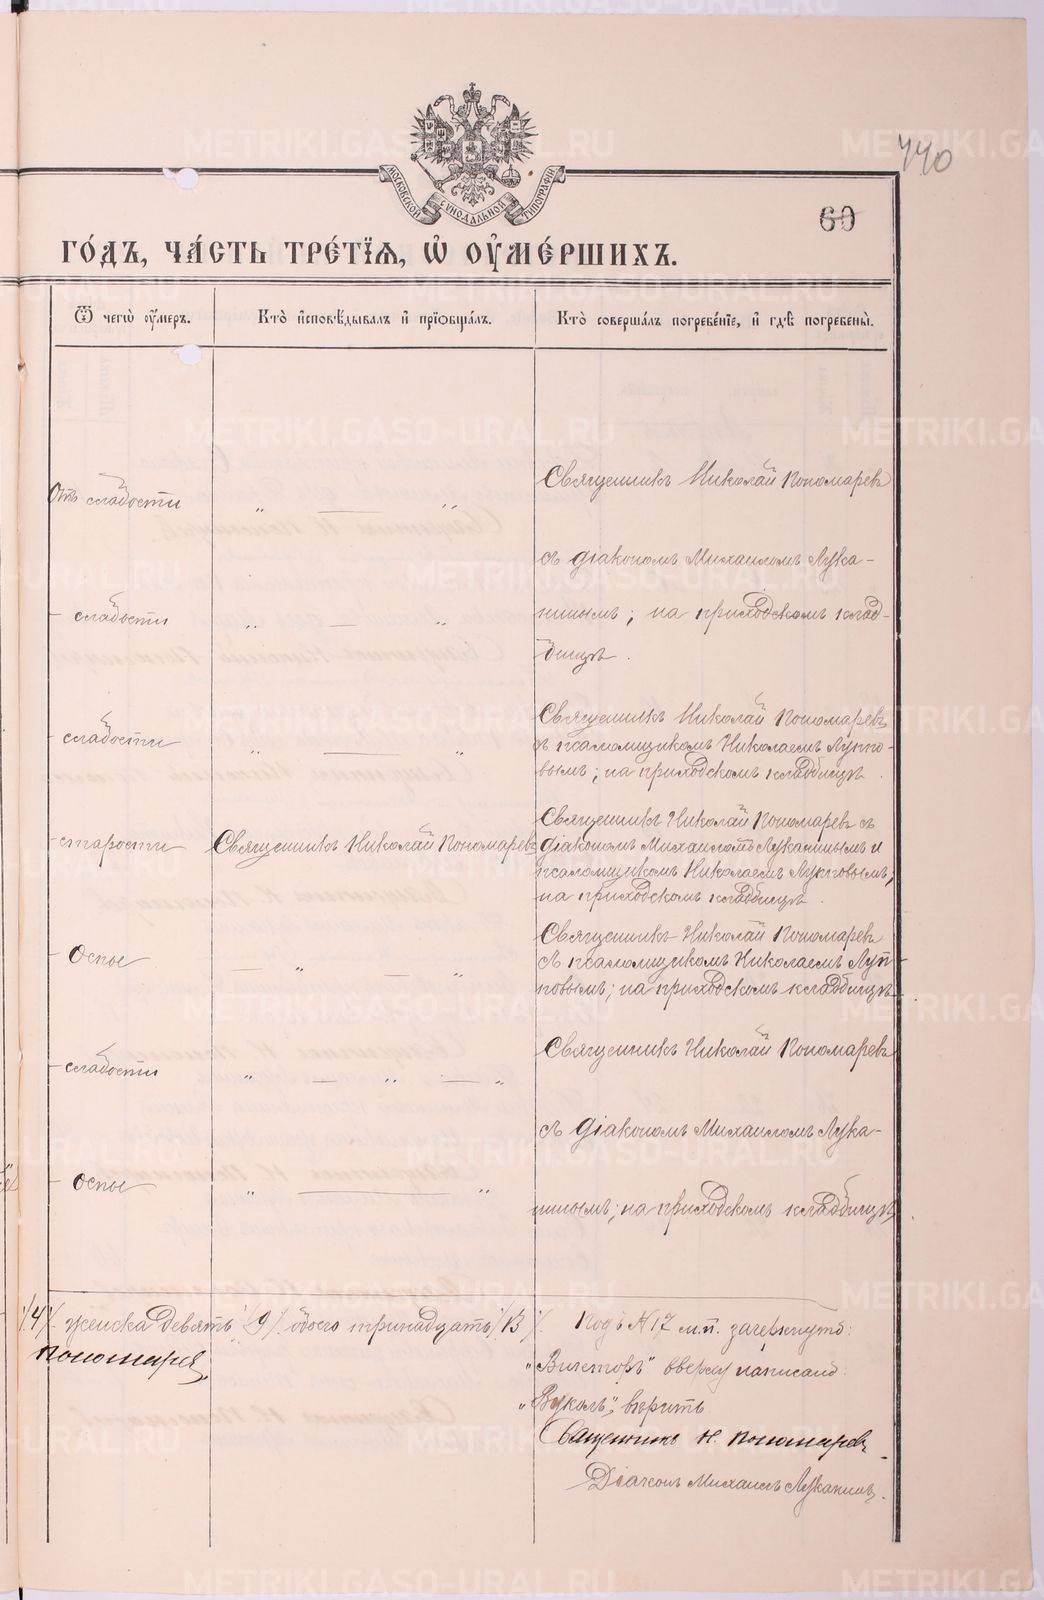 440
МОСКОВСКОЙ СѴНОДАЛЬНОЙ ТИПОГРАФІИ
60
ГО́ДЪ, ЧА́СТЬ ТРЕ́ТІЯ, Ѡ҆ ОУ҆МЕ́РШИХЪ.
Ѿ чегѡ̀ оу҆́меръ.
Кто̀ и҆сповѣ́дывалъ и҆ прїѡбща́лъ.
Кто̀ соверша́лъ погребе́нїе, и҆ гдѣ̀ погребены̀.
Отъ слабости
„ — „
Священникъ Николай Пономаревъ
съ діакономъ Михаиломъ Лука-
- слабости
„ — „
нинымъ; на приходскомъ клад-
бищѣ.
- слабости
„ — „
Священникъ Николай Пономаревъ
съ псаломщикомъ Николаемъ Луппо-
вымъ; на приходскомъ кладбищѣ.
- старости
Священникъ Николай Пономаревъ
Священникъ Николай Пономаревъ съ
діакономъ Михаиломъ Луканинымъ и
псаломщикомъ Николаемъ Лупповымъ;
на приходскомъ кладбищѣ.
- Оспы
— „ — „
Священникъ Николай Пономаревъ
съ псаломщикомъ Николаемъ Луп-
повымъ; на приходскомъ кладбищѣ
- слабости
„ — „ — „
Священникъ Николай Пономаревъ
съ діакономъ Михаиломъ Лука-
- Оспы
„ — „
нинымъ; на приходскомъ кладбищѣ.
/4/. женска девять /9/ обоего тринадцать /13/.
Пономаревъ
Подъ № 17 м.п. зачеркнуто:
„Викторъ“ вверху написано:
„Вуколъ“, вѣрить.
Священникъ Н. Пономаревъ.
Діаконъ Михаилъ Луканинъ.
METRIKI.GASO-URAL.RU